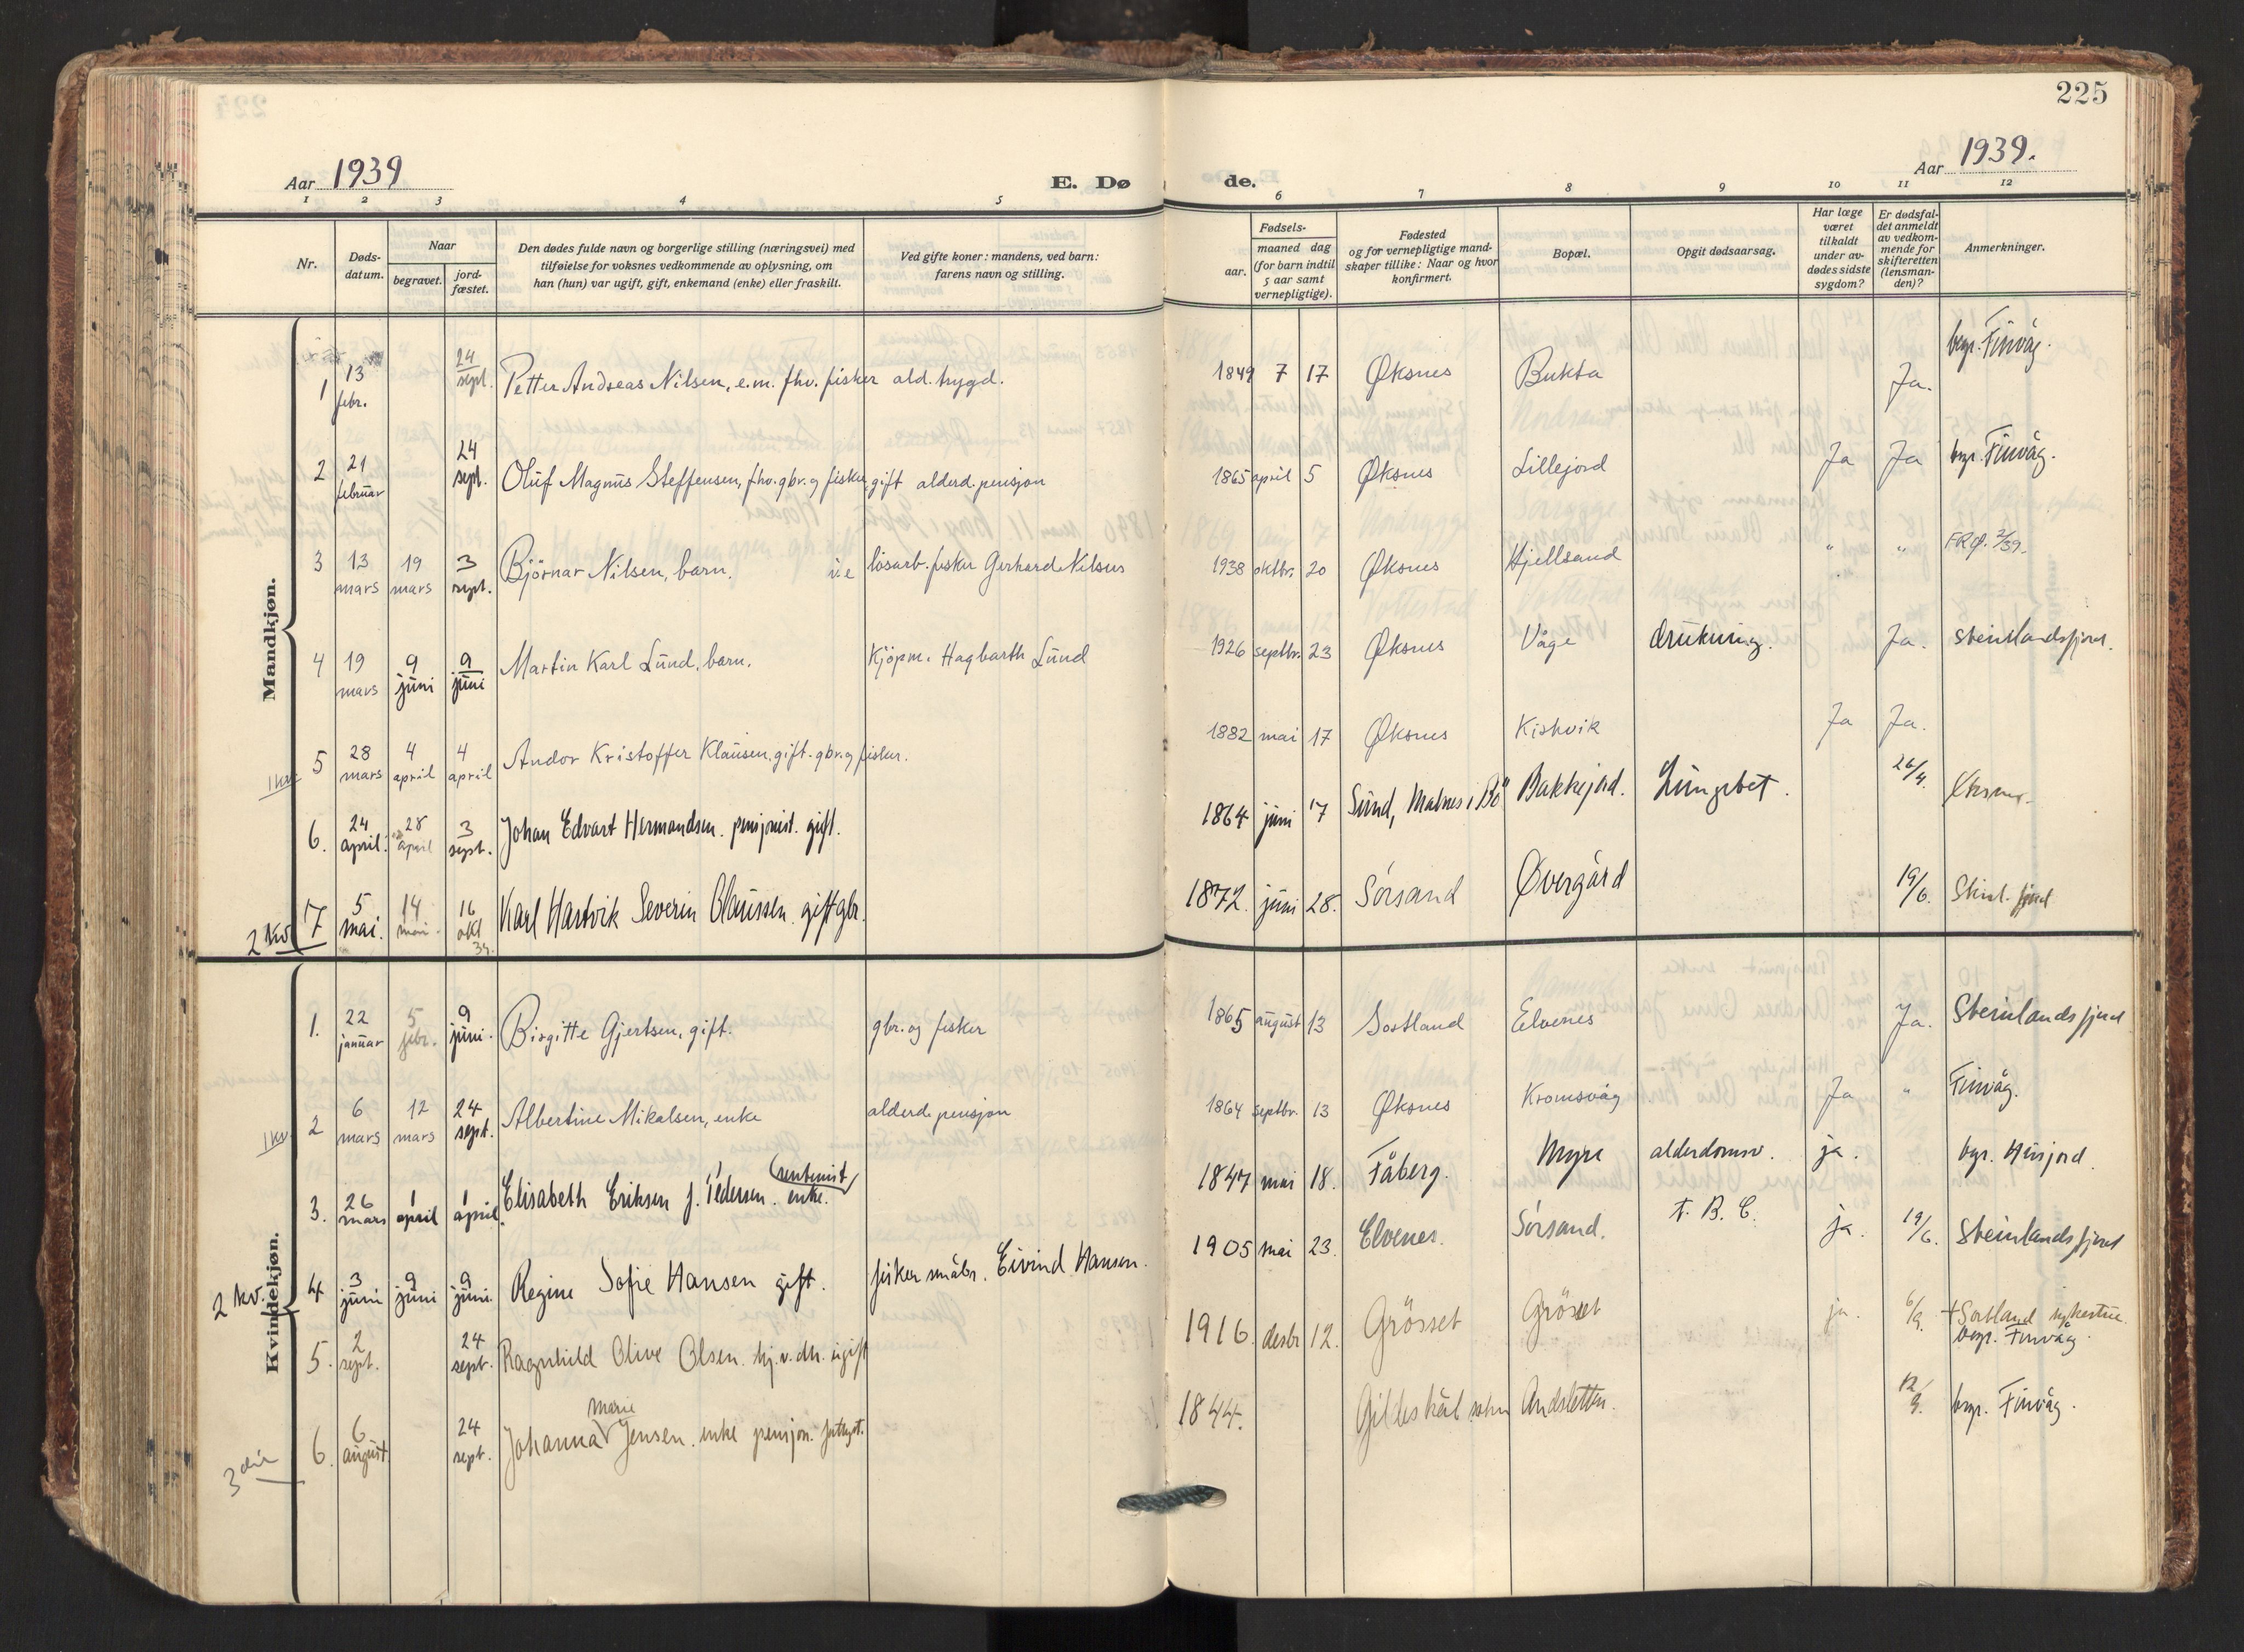 225
Aar 1939
E. Dø
de.
Aar 1939.
1 2 3 4 5 6 7 8 9 10 11 12
Nr.
Døds-
datum.
Naar
begravet.
jord-
fæstet.
Den dødes fulde navn og borgerlige stilling (næringsvei) med
tilføielse for voksnes vedkommende av oplysning, om
han (hun) var ugift, gift, enkemand (enke) eller fraskilt.
Ved gifte koner: mandens, ved barn:
farens navn og stilling.
Fødsels-
aar.
maaned dag
(for barn indtil
5 aar samt
vernepligtige).
Fødested
og for vernepligtige mand-
skaper tillike: Naar og hvor
konfirmert.
Bopæl.
Opgit dødsaarsag.
Har læge
været
tilkaldt
under av-
dødes sidste
sygdom?
Er dødsfal-
det anmeldt
av vedkom-
mende for
skifteretten
(lensman-
den)?
Anmerkninger.
Mandkjøn.
1 13 febr. 24 sept. Petter Andreas Nilsen, e.m. fhv. fisker ald. trygd. 1849 7 17 Øksnes Bukta Ja. begr. Finvåg.
2 21 februar 24 sept. Oluf Magnus Steffensen, fhv. gbr. og fisker, gift alderd. pensjon 1865 april 5 Øksnes Lillejord Ja Ja begr. Finvåg.
3 13 mars 19 mars 3 sept. Björnar Nilsen, barn. u.e lösarb. fisker Gerhard Nilsens 1938 oktbr. 20 Øksnes Hjellsand " " 2/39.
4 19 mars 9 juni 9 juni Martin Karl Lund, barn. Kjöpm. Hagbarth Lund 1926 septbr. 23 Øksnes Våge drukning. Ja. Steinlandsfjord.
5 28 mars 4 april 4 april Andor Kristoffer Klausen, gift. gbr. og fisker. 1882 mai 17 Øksnes Kishvik Ja Ja.
1 kv.
6. 24 april. 28 april 3 sept. Johan Edvart Hermandsen. pensjonist. gift. 1864 juni 17 Sund, Malnes i Bö Bakkejord. Lungebet. 26/4. Øksnes.
7 5 mai. 14 mai. 16 okt 39. Karl Hartvik Severin Olaussen. gift gbr. 1872. juni 28. Sörsand Övergård 19/6. Steinl. fjord
2 kv.
Kvindekjøn.
1. 22 januar 5 febr. 9 juni. Birgitte Gjertsen, gift. gbr. og fisker 1865 august 13 Sortland Elvenes Ja. Steinlandsfjord
2 6 mars 12 mars 24 sept. Albertine Mikalsen, enke alderd. pensjon 1864 septbr. 13 Øksnes Kromsvåg Ja " Finvåg.
1 kv.
3. 26 mars 1 april 1 april. Elisabeth Eriksen f. Pedersen. enke. (rentenist) 1847 mai 18. Fåberg. Myre alderdomsv. ja. begr. Husjord
4 3 juni 9 juni 9 juni. Regine Sofie Hansen gift. fisker småbr. Eivind Hansen. 1905 mai 23. Elvenes. Sörsand. t. B. C. ja. 19/6. Steinlandsfjord
2 kv.
5. 2 sept. 24 sept. Ragnhild Olive Olsen. hj.v. dtr. ugift 1916. desbr 12. Grösset Gröset ja. 6/9. + Sortland sykestue.
begr. Finvåg.
6. 6 august 24 sept. Johanna marie Jensen. enke pensjon. 1844. Gildeskål Andsletten. 12/9. begr. Finvåg.